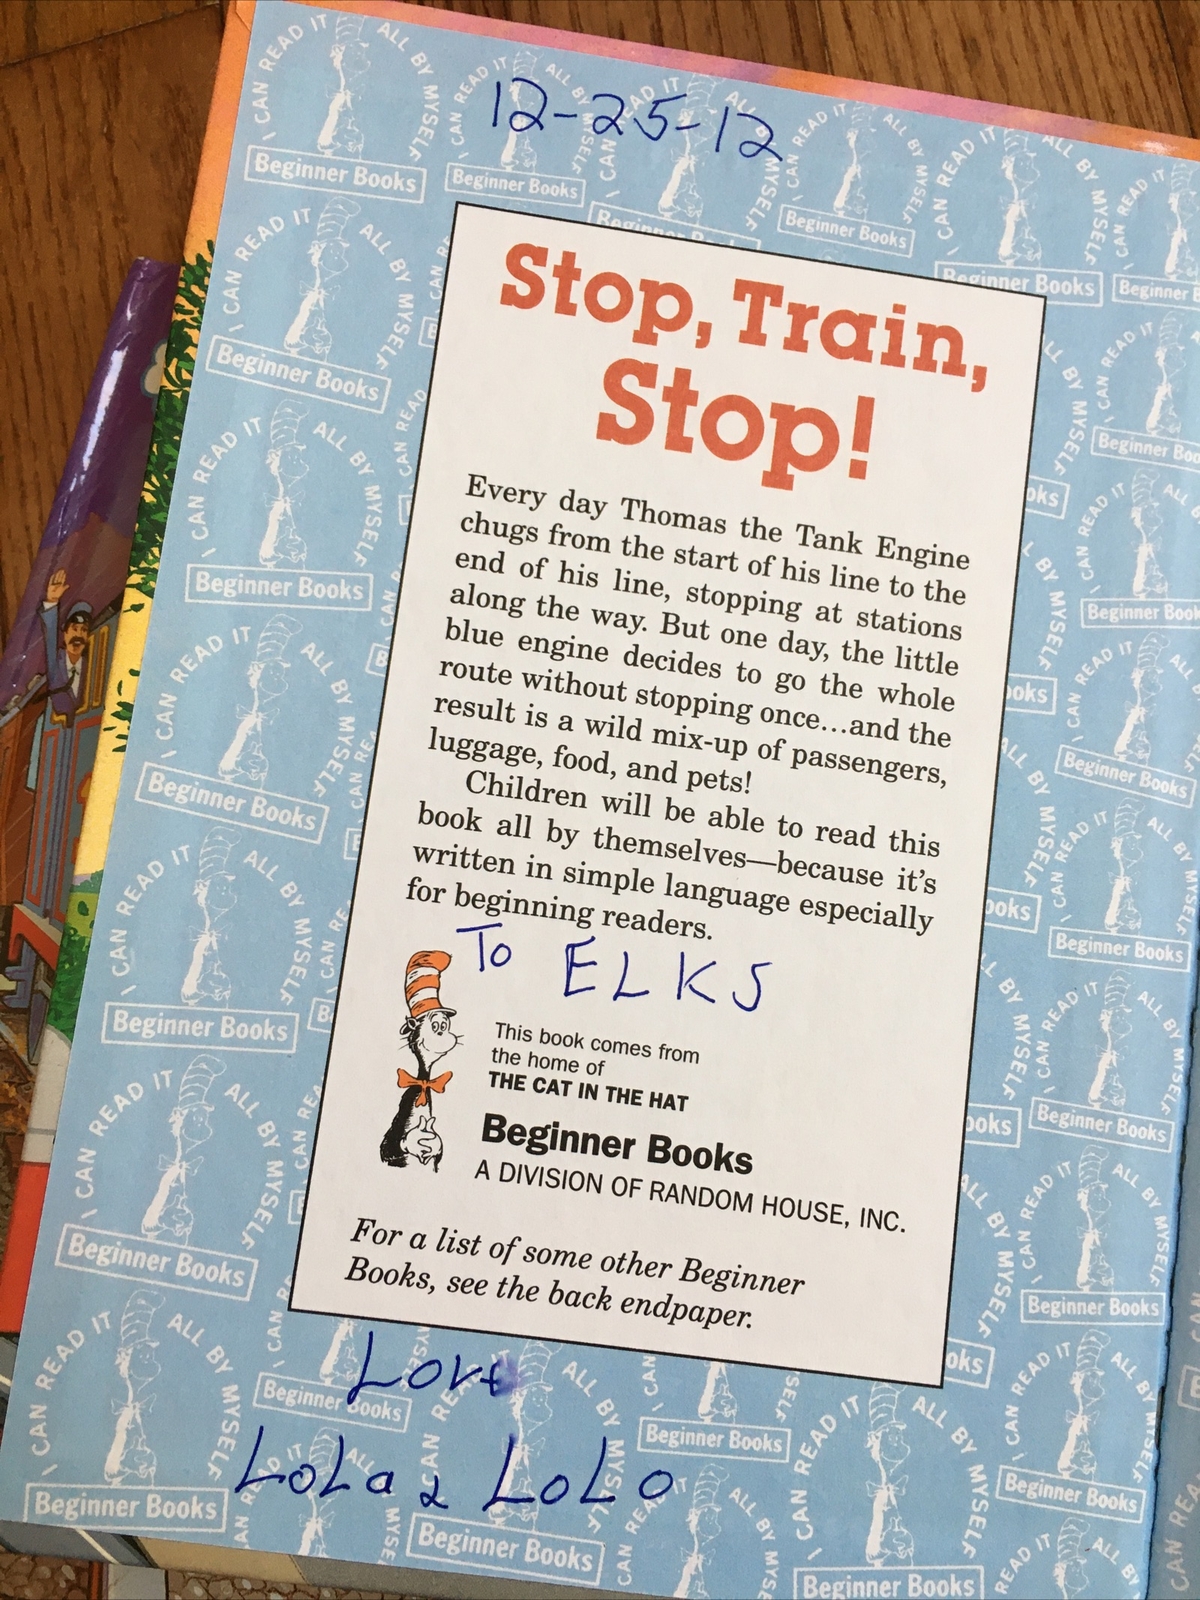 12-25-12
Stop, Train,
Stop!
Every day Thomas the Tank Engine
chugs from the start of his line to the
end of his line, stopping at stations
along the way. But one day, the little
blue engine decides to go the whole
route without stopping once...and the
result is a wild mix-up of passengers,
luggage, food, and pets!
Children will be able to read this
book all by themselves—because it's
written in simple language especially
for beginning readers.
To ELKS
This book comes from
the home of
THE CAT IN THE HAT
Beginner Books
A DIVISION OF RANDOM HOUSE, INC.
For a list of some other Beginner
Books, see the back endpaper.
Love
LoLa & LoLo
I CAN READ IT ALL BY MYSELF
Beginner Books